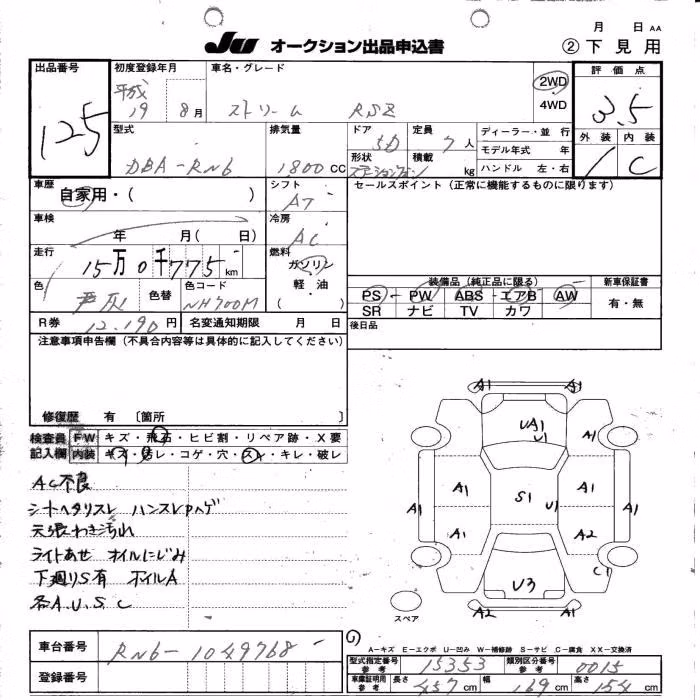 月 日 AA
JU オークション出品申込書
② 下見用
出品番号
125
初度登録年月
平成
19 8月
車名・グレード
ストリーム RSZ
2WD
4WD
評価点
3.5
外装 内装
/ C
型式
DBA-RN6
排気量
1800 CC
ドア
5D
定員
7人
形状
ステーションワゴン
積載
kg
ディーラー・並行
モデル年式 年
ハンドル 左・右
車歴
自家用・( )
シフト
AT
セールスポイント(正常に機能するものに限ります)
車検
年 月( 日)
冷房
AC
走行
15万0千775 km
燃料
ガソリン
軽・油
( )
色
色替
色コード
NH700M
装備品(純正品に限る)
PS PW ABS エアB AW
SR ナビ TV カワ
新車保証書
有・無
R券 12,190円
名変通知期限 月 日
後日品
注意事項申告欄(不具合内容等は具体的に記入してください)
修復歴 有 〔箇所 〕
検査員
記入欄
FW キズ・飛石・ヒビ割・リペア跡・X要
内装 キズ・汚レ・コゲ・穴・スレ・キレ・破レ
AC不良
シートヘタリスレ ハンスレハゲ
天張わき汚れ
ライトあせ オイルにじみ
下廻りS有 ホイルA
各A.U.S.C
A1 A1
UA1
U1
A1 A1 S1 U1 A1 A1
A1 A2
C1
U3
A2 A1
スペア
車台番号
RN6-1049768
登録番号
A-キズ E-エクボ U-凹み W-補修跡 S-サビ C-腐食 XX-交換済
型式指定番号
参考
15353
類別区分番号
参考
0015
車庫証明用
参考
長さ 457cm 幅 169cm 高さ 154cm